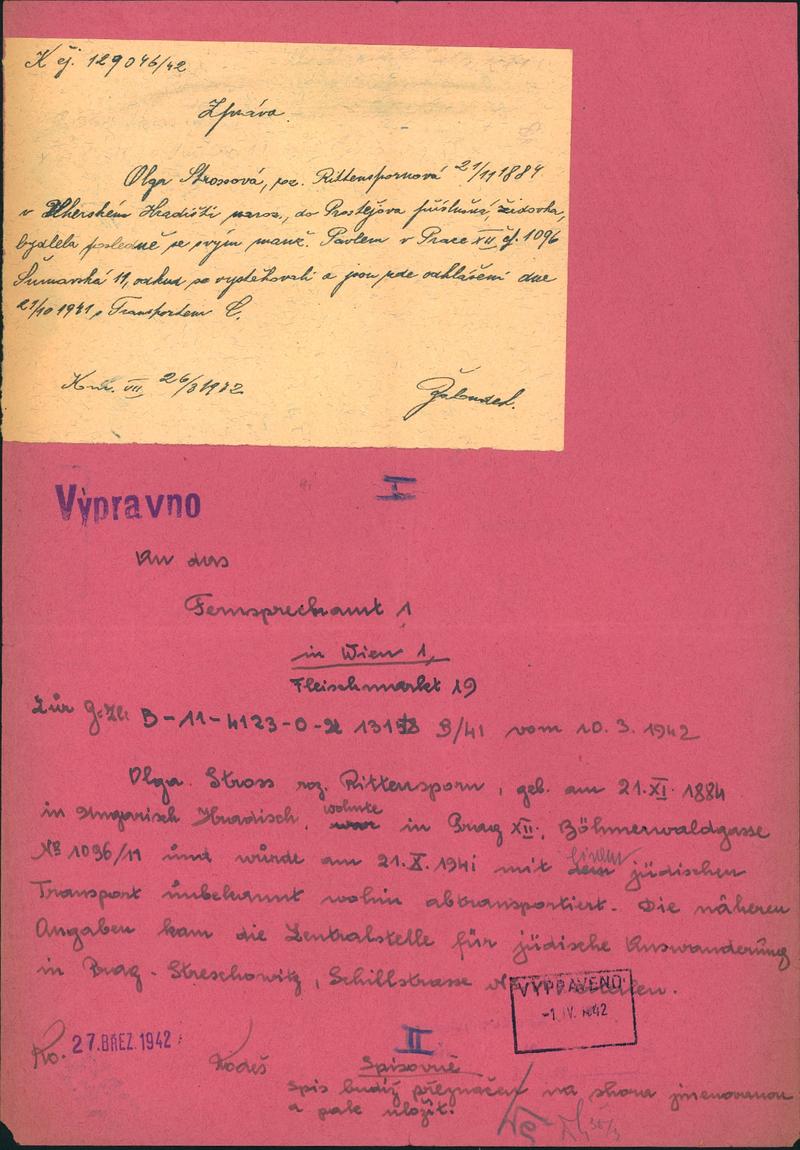 K čj. 129046/42
Zpráva.
Olga Strossová, roz. Rittenspornová 21/11 1884
v Uherském Hradišti naroz., do Prostějova příslušná, židovka,
bydlela posledně se svým manž. Pavlem v Praze XII. čj. 1096
Šumavská 11, odkud se vystěhovali a jsou zde odhlášeni dne
21/10 1941 s Transportem C.
26/3 1942
Vypravno
I
An das
Fernsprechamt 1
in Wien 1,
Fleischmarkt 19
Zur G-Zl: B-11-4123-0- 9/41 vom 10. 3. 1942
Olga Stross roz. Rittensporn, geb. am 21. XI. 1884
in Ungarisch Hradisch, wohnte in Prag XII, Böhmerwaldgasse
No 1096/11 und wurde am 21. X. 1941 mit einem jüdischen
Transport unbekannt wohin abtransportiert. Die näheren
Angaben kann die Zentralstelle für jüdische Auswanderung
in Prag - Streschowitz, Schillstrasse erteilen.
VYPRAVENO
-1. IV. 1942
Ko. 27. BŘEZ. 1942
Kodeš
II
Spisovně
Spis budiž přeznačen na shora jmenovanou
a pak uložit.